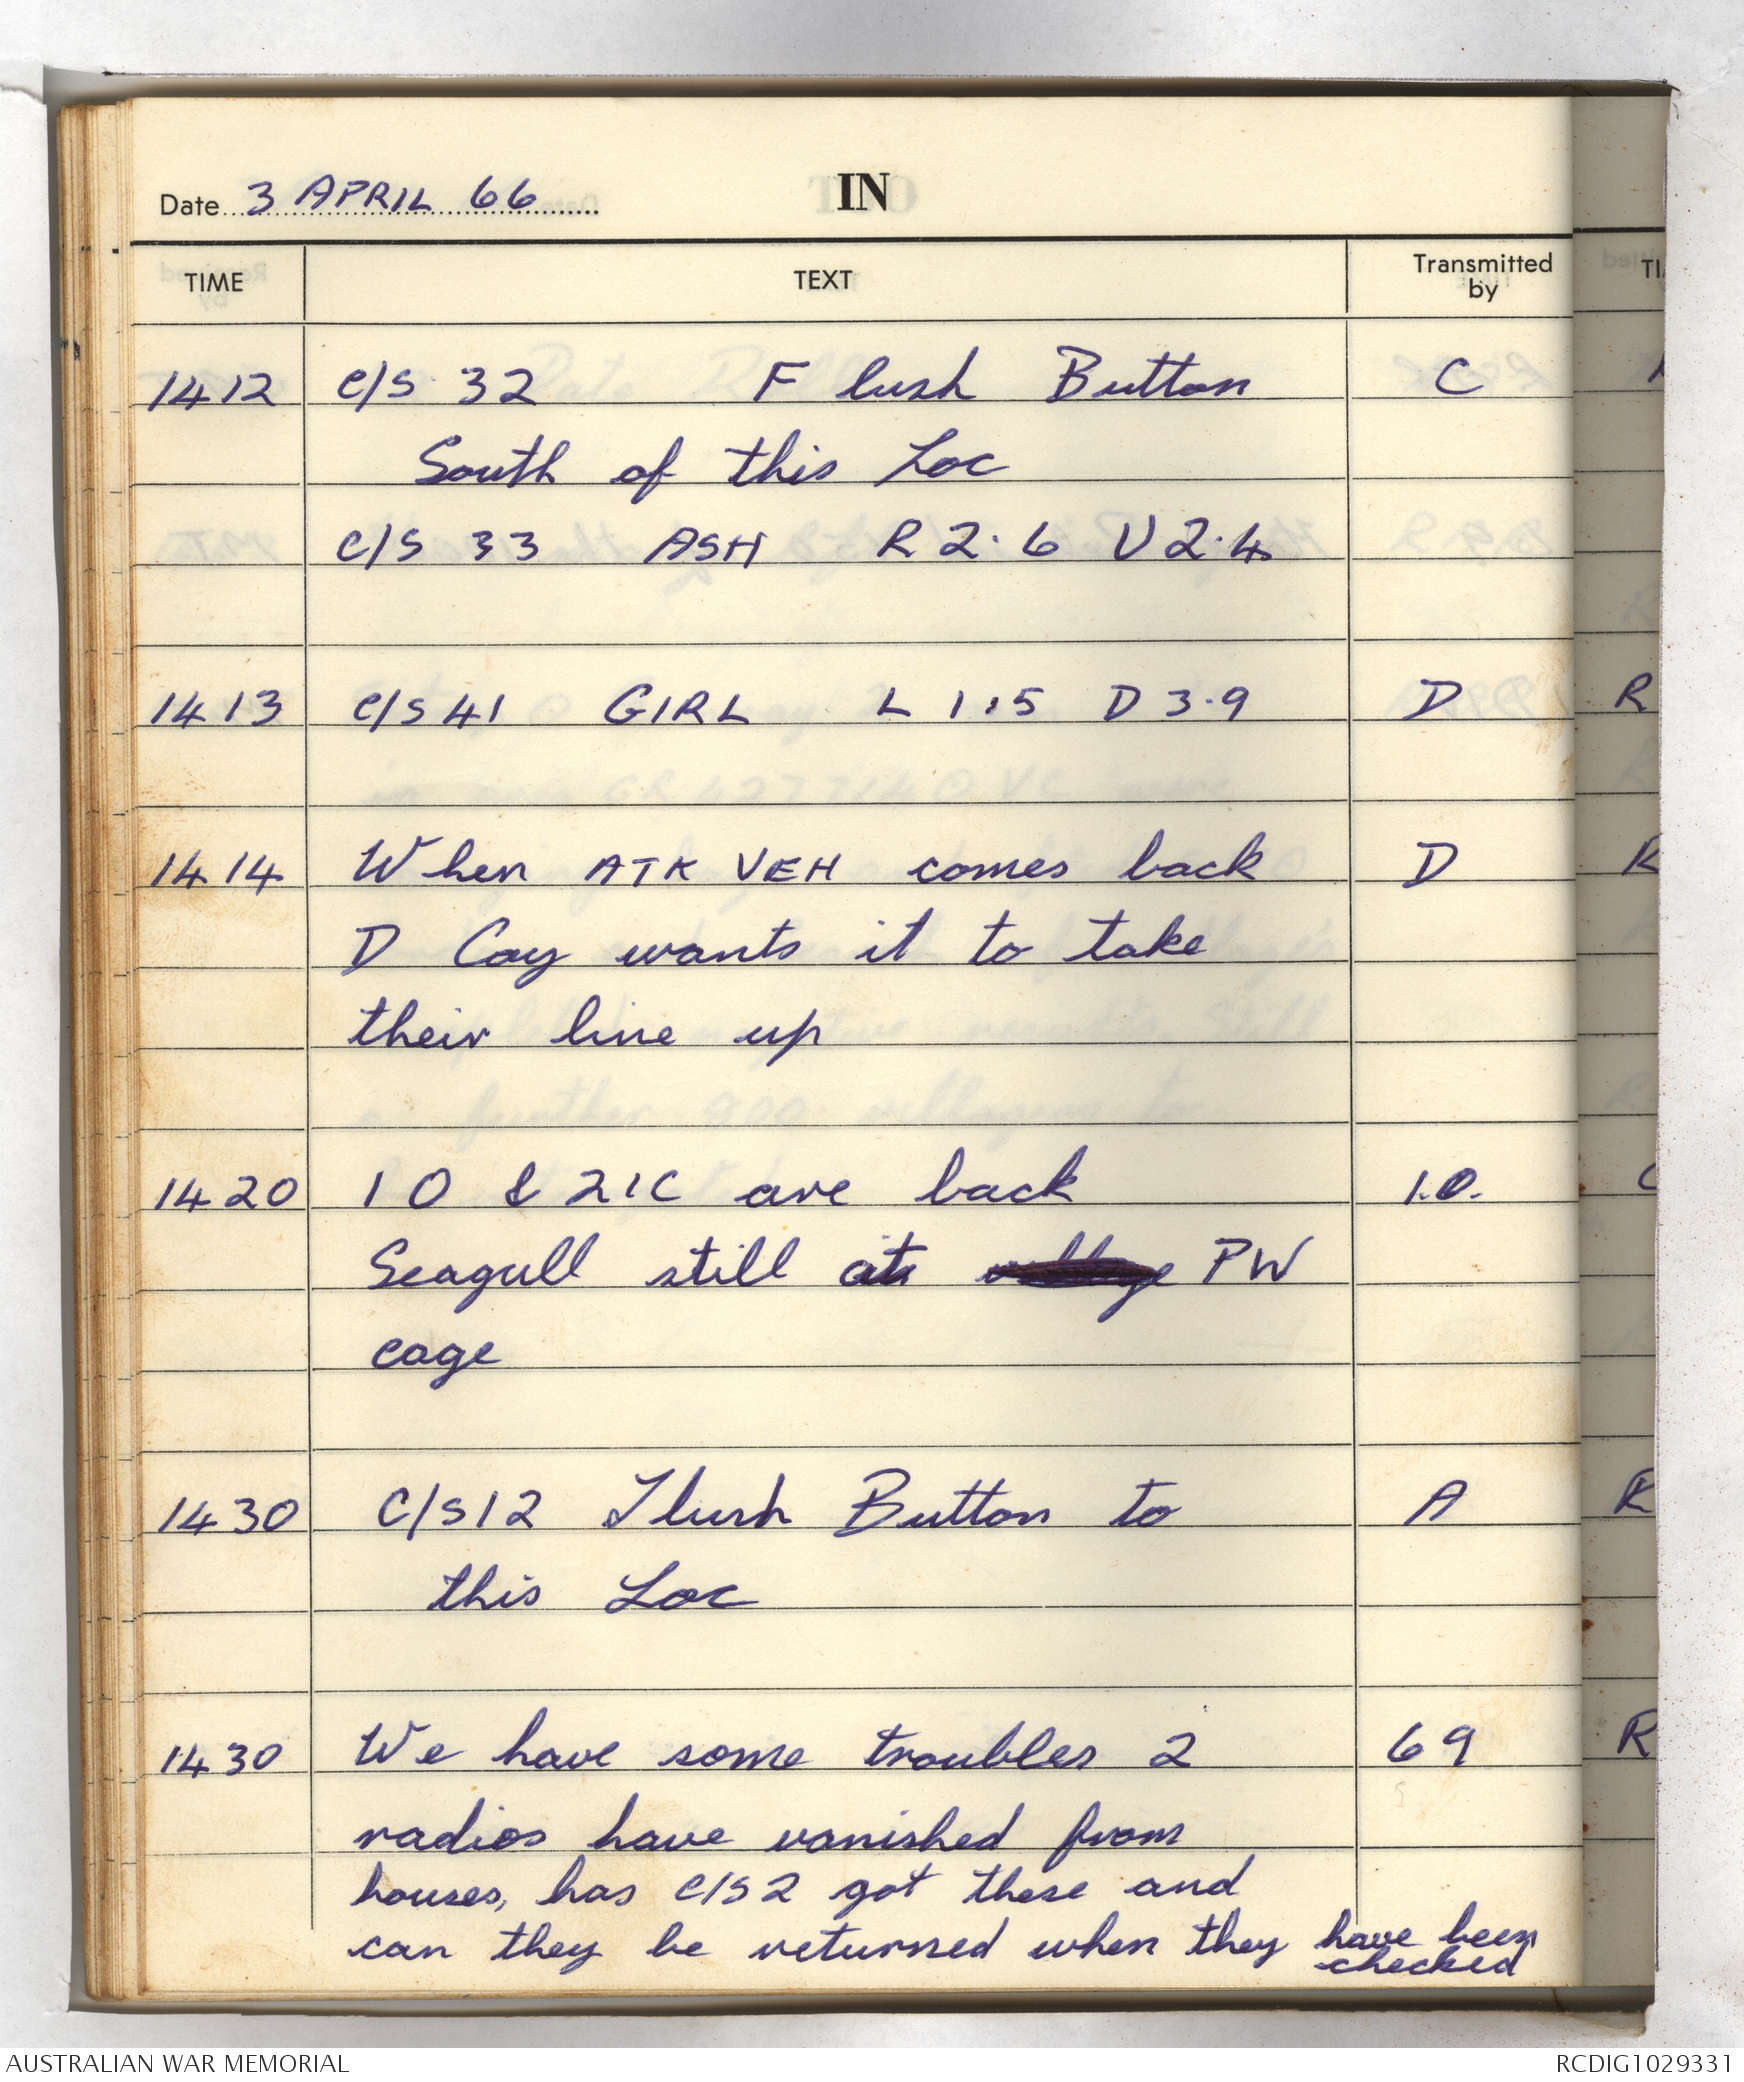 Date 3 APRIL 66
IN
TIME TEXT Transmitted by
1412 C/S 32 Flush Button C
South of this Loc
C/S 33 ASH R 2.6 U 2.4
1413 C/S 41 GIRL L 1.5 D 3.9 D
1414 When ATK VEH comes back D
D Coy wants it to take
their line up
1420 IO & 2IC are back I.O.
Seagull still at PW
cage
1430 C/S 12 Flush Button to A
this Loc
1430 We have some troubles 2 69
radios have vanished from
houses, has C/S 2 got these and
can they be returned when they have been
checked
AUSTRALIAN WAR MEMORIAL RCDIG1029331